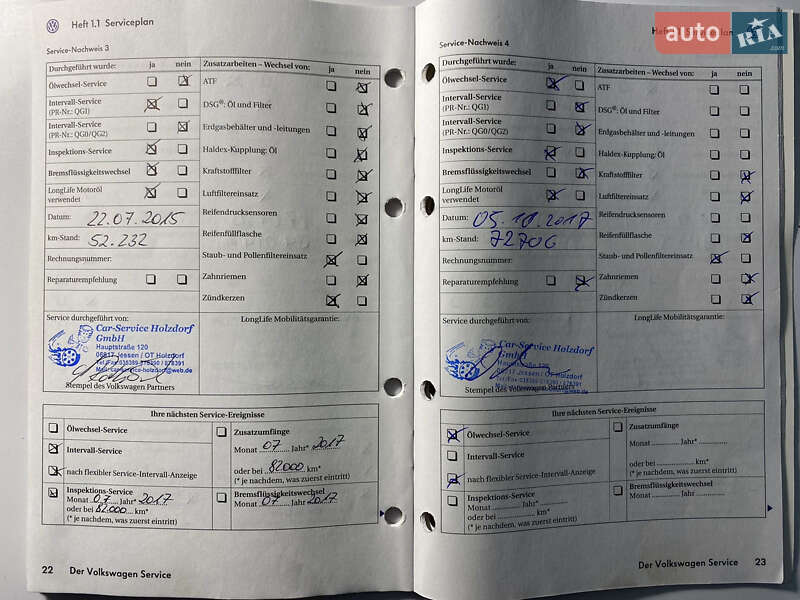 Heft 1.1 Serviceplan
Service-Nachweis 3
Durchgeführt wurde: ja nein
Zusatzarbeiten – Wechsel von: ja nein
Ölwechsel-Service
ATF
Intervall-Service
(PR-Nr.: QG1)
DSG®: Öl und Filter
Intervall-Service
(PR-Nr.: QG0/QG2)
Erdgasbehälter und -leitungen
Inspektions-Service
Haldex-Kupplung: Öl
Bremsflüssigkeitswechsel
Kraftstofffilter
LongLife Motoröl
verwendet
Luftfiltereinsatz
Datum: 22.07.2015
Reifendrucksensoren
km-Stand: 52.232
Reifenfüllflasche
Rechnungsnummer:
Staub- und Pollenfiltereinsatz
Reparaturempfehlung
Zahnriemen
Zündkerzen
Service durchgeführt von:
LongLife Mobilitätsgarantie:
Car-Service Holzdorf
GmbH
Hauptstraße 120
06917 Jessen / OT Holzdorf
Stempel des Volkswagen Partners
Ihre nächsten Service-Ereignisse
Ölwechsel-Service
Intervall-Service
nach flexibler Service-Intervall-Anzeige
Inspektions-Service
Monat 07 Jahr* 2017
oder bei 82000 km*
(* je nachdem, was zuerst eintritt)
Zusatzumfänge
Monat 07 Jahr* 2017
oder bei 82000 km*
(* je nachdem, was zuerst eintritt)
Bremsflüssigkeitswechsel
Monat 07 Jahr 2017
22 Der Volkswagen Service
auto RIA .com
Service-Nachweis 4
Durchgeführt wurde: ja nein
Zusatzarbeiten – Wechsel von: ja nein
Ölwechsel-Service
ATF
Intervall-Service
(PR-Nr.: QG1)
DSG®: Öl und Filter
Intervall-Service
(PR-Nr.: QG0/QG2)
Erdgasbehälter und -leitungen
Inspektions-Service
Haldex-Kupplung: Öl
Bremsflüssigkeitswechsel
Kraftstofffilter
LongLife Motoröl
verwendet
Luftfiltereinsatz
Datum: 05.10.2017
Reifendrucksensoren
km-Stand: 72706
Reifenfüllflasche
Rechnungsnummer:
Staub- und Pollenfiltereinsatz
Reparaturempfehlung
Zahnriemen
Zündkerzen
Service durchgeführt von:
LongLife Mobilitätsgarantie:
Car-Service Holzdorf
GmbH
Stempel des Volkswagen Partners
Ihre nächsten Service-Ereignisse
Ölwechsel-Service
Intervall-Service
nach flexibler Service-Intervall-Anzeige
Inspektions-Service
Monat Jahr*
oder bei km*
(* je nachdem, was zuerst eintritt)
Zusatzumfänge
Monat Jahr*
oder bei km*
(* je nachdem, was zuerst eintritt)
Bremsflüssigkeitswechsel
Monat Jahr
Der Volkswagen Service 23